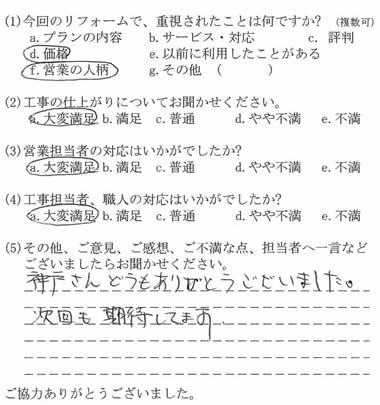 (1)今回のリフォームで、重視されたことは何ですか? (複数可)
a.プランの内容 b.サービス・対応 c. 評判
d.価格 e.以前に利用したことがある
f.営業の人柄 g.その他 ( )
(2)工事の仕上がりについてお聞かせください。
a.大変満足 b.満足 c.普通 d.やや不満 e.不満
(3)営業担当者の対応はいかがでしたか?
a.大変満足 b.満足 c.普通 d.やや不満 e.不満
(4)工事担当者、職人の対応はいかがでしたか?
a.大変満足 b.満足 c.普通 d.やや不満 e.不満
(5)その他、ご意見、ご感想、ご不満な点、担当者へ一言など
ございましたらお聞かせください。
神戸さんどうもありがとうございました。
次回も期待してます
ご協力ありがとうございました。